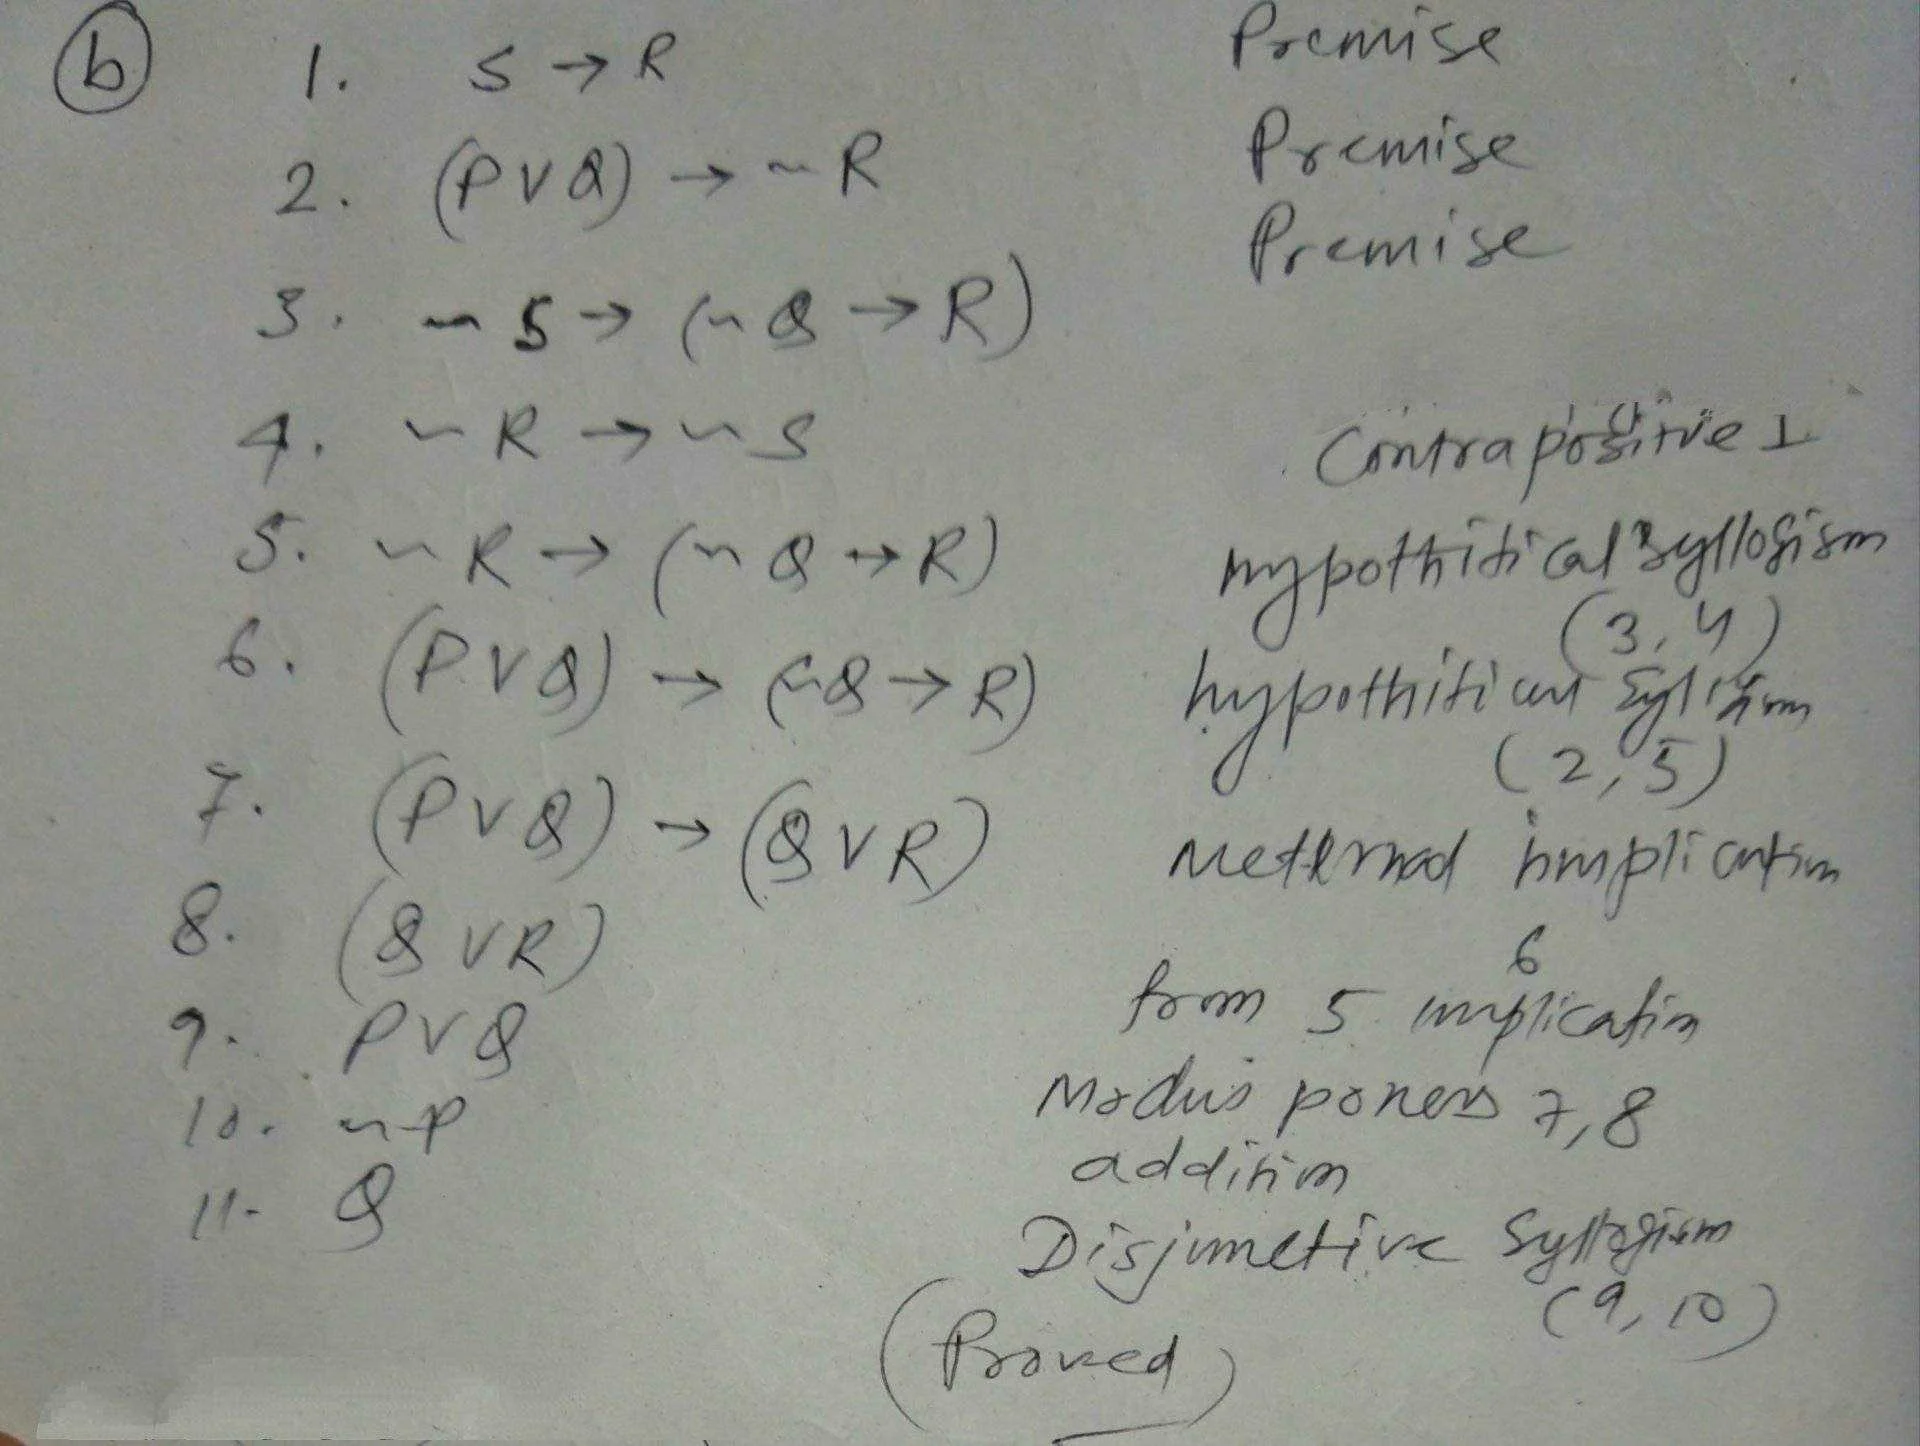 (b) 1. S → R Premise
2. (P ∨ Q) → ~R Premise
Premise
3. ~S → (~Q → R)
4. ~R → ~S Contrapositive 1
5. ~R → (~Q → R) hypothitical syllogism
(3,4)
6. (P ∨ Q) → (~Q → R)
(2,5)
7. (P ∨ Q) → (Q ∨ R) implication
6
8. (Q ∨ R) from 5 implication
9. P ∨ Q Modus ponens 7,8
10. ~P addition
11- Q Disjunctive Syllogism
(9,10)
(Proved)